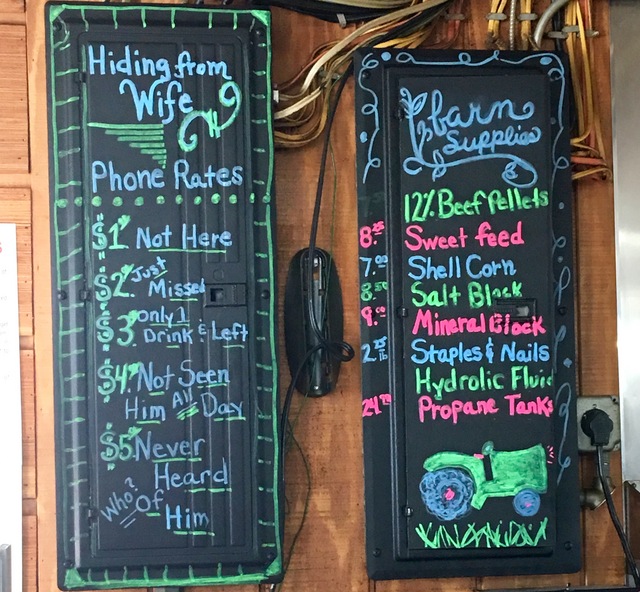 Hiding from
Wife
Phone Rates
$1. Not Here
$2. Just
Missed
$3. only 1
Drink & Left
$4. Not Seen
Him All Day
$5. Never
Heard
Who? Of
Him
barn
Supplies
12% Beef Pellets
Sweet feed
7.00 Shell Corn
8.50 Salt Block
9.00 Mineral Block
Staples & Nails
Hydrolic Fluid
Propane Tanks